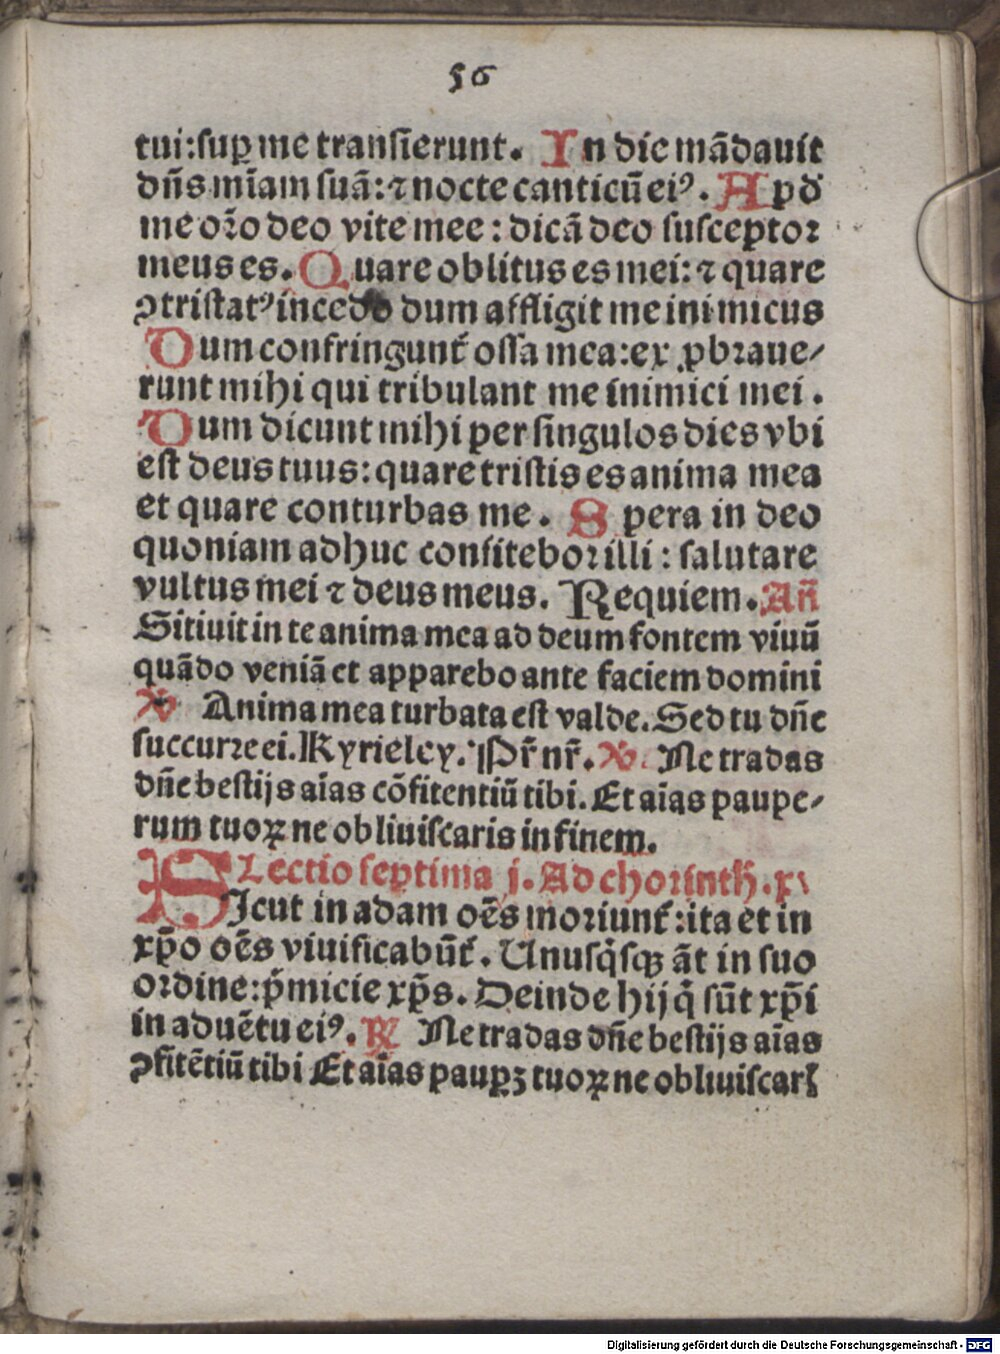 56
tui:suꝑ me transierunt. In die mādauit
dn̄s mīam suā: ⁊ nocte canticū eiꝰ. Apd'
me or̄o deo vite mee: dicā deo susceptor
meus es. Quare oblitus es mei: ⁊ quare
ꝯtristatꝰ incedo dum affligit me inimicus
Dum confringunt̄ ossa mea:ex ꝓbraue⸗
runt mihi qui tribulant me inimici mei.
Dum dicunt mihi per singulos dies vbi
est deus tuus: quare tristis es anima mea
et quare conturbas me. Spera in deo
quoniam adhuc confitebor illi: salutare
vultus mei ⁊ deus meus. Requiem. Añ
Sitiuit in te anima mea ad deum fontem viuū
quādo veniā et apparebo ante faciem domini
℣ Anima mea turbata est valde. Sed tu dn̄e
succurre ei. Kyrieley. Pr̄ nr̄. ℣ Ne tradas
dn̄e bestijs aīas cōfitentiū tibi. Et aīas paupe⸗
rum tuoꝝ ne obliuiscaris in finem.
Lectio septima j. Ad chorinth. xv
SIcut in adam oēs moriunt̄: ita et in
xp̄o oēs viuificabūt̄. Unusq̄sqꝫ āt in suo
ordine: p̄micie xp̄s. Deinde hij q̄ sūt xp̄i
in aduētu eiꝰ. ℟ Ne tradas dn̄e bestijs aīas
ꝯfitētiū tibi Et aīas pauꝑꝫ tuoꝝ ne obliuiscarꝭ
Digitalisierung gefördert durch die Deutsche Forschungsgemeinschaft - DFG